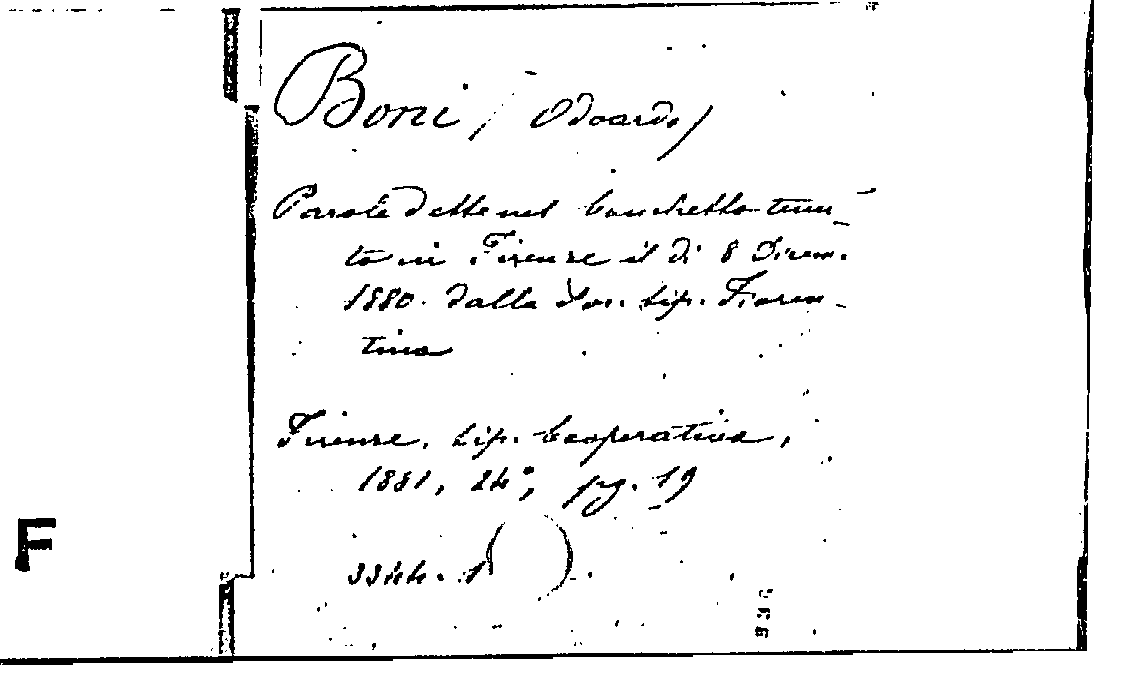 Boni / Odoardo/
Parole dette nel banchetto tenu-
to in Firenze il dì 8 Dicem.
1880. dalla Soc. tip. Fioren-
tina
Firenze, tip. Cooperativa,
1881, 24°, pg. 19
3344. 1 ( ).
F